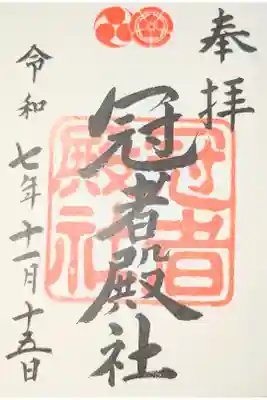 奉拝
冠者殿社
冠者殿社
令和七年十一月十五日